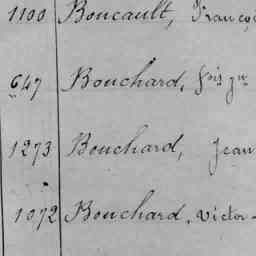 1100 Boucault, Franç
647 Bouchard, fois jn
1273 Bouchard, Jean
1072 Bouchard, Victor